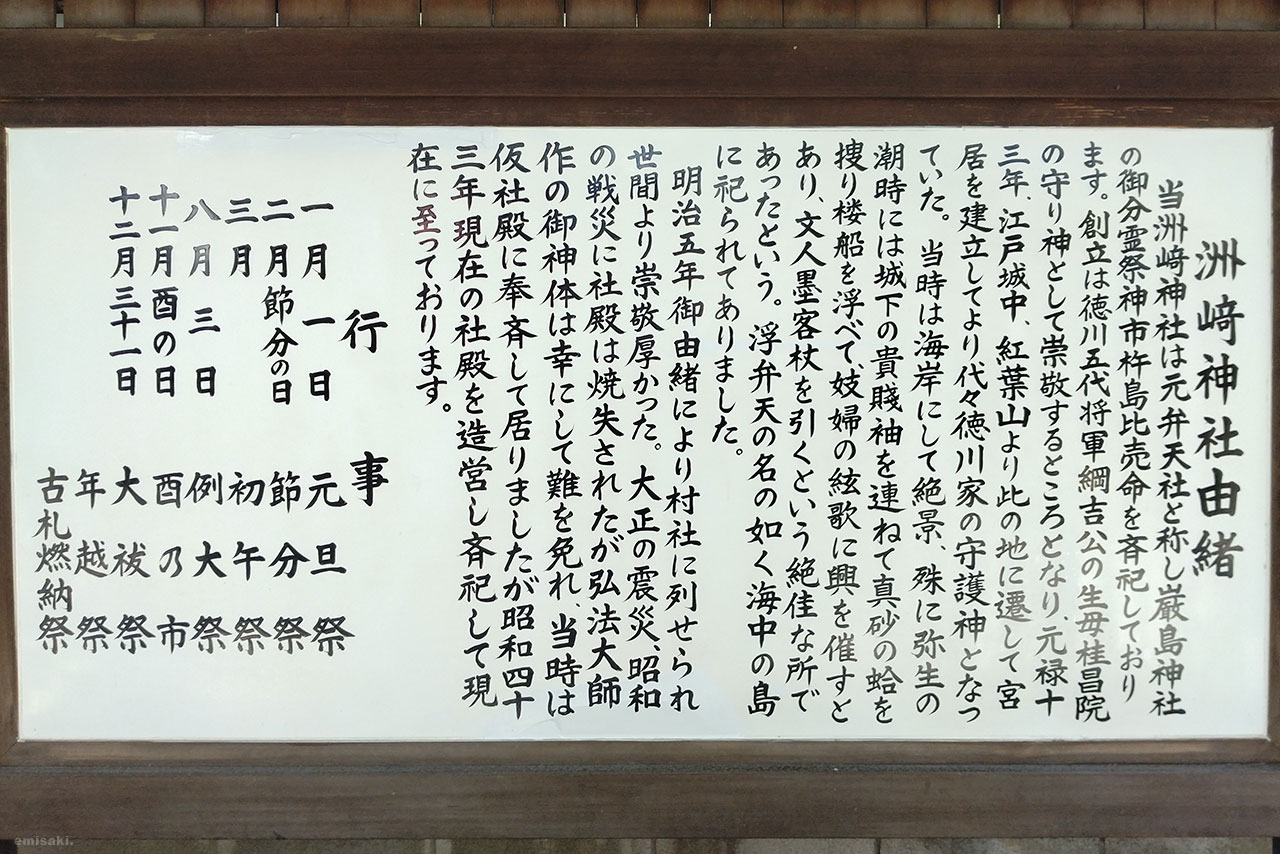 洲﨑神社由緒
当洲﨑神社は元弁天社と称し厳島神社
の御分霊祭神市杵島比売命を斉祀しており
ます。創立は徳川五代将軍綱吉公の生母桂昌院
の守り神として崇敬するところとなり、元禄十
三年、江戸城中、紅葉山より此の地に遷して宮
居を建立してより代々徳川家の守護神となっ
ていた。当時は海岸にして絶景、殊に弥生の
潮時には城下の貴賤袖を連ねて真砂の蛤を
捜り楼船を浮べて、妓婦の絃歌に興を催すと
あり、文人墨客杖を引くという絶佳な所で
あったという。浮弁天の名の如く海中の島
に祀られてありました。
明治五年御由緒により村社に列せられ
世間より崇敬厚かった。大正の震災、昭和
の戦災に社殿は焼失されたが弘法大師
作の御神体は幸にして難を免れ、当時は
仮社殿に奉斉して居りましたが昭和四十
三年現在の社殿を造営し斉祀して現
在に至っております。
行事
一月一日 元旦祭
二月節分の日 節分祭
三月 初午祭
八月三日 例大祭
十一月酉の日 酉乃市
十二月三十一日 大祓祭
年越祭
古札燃納祭
emisaki.